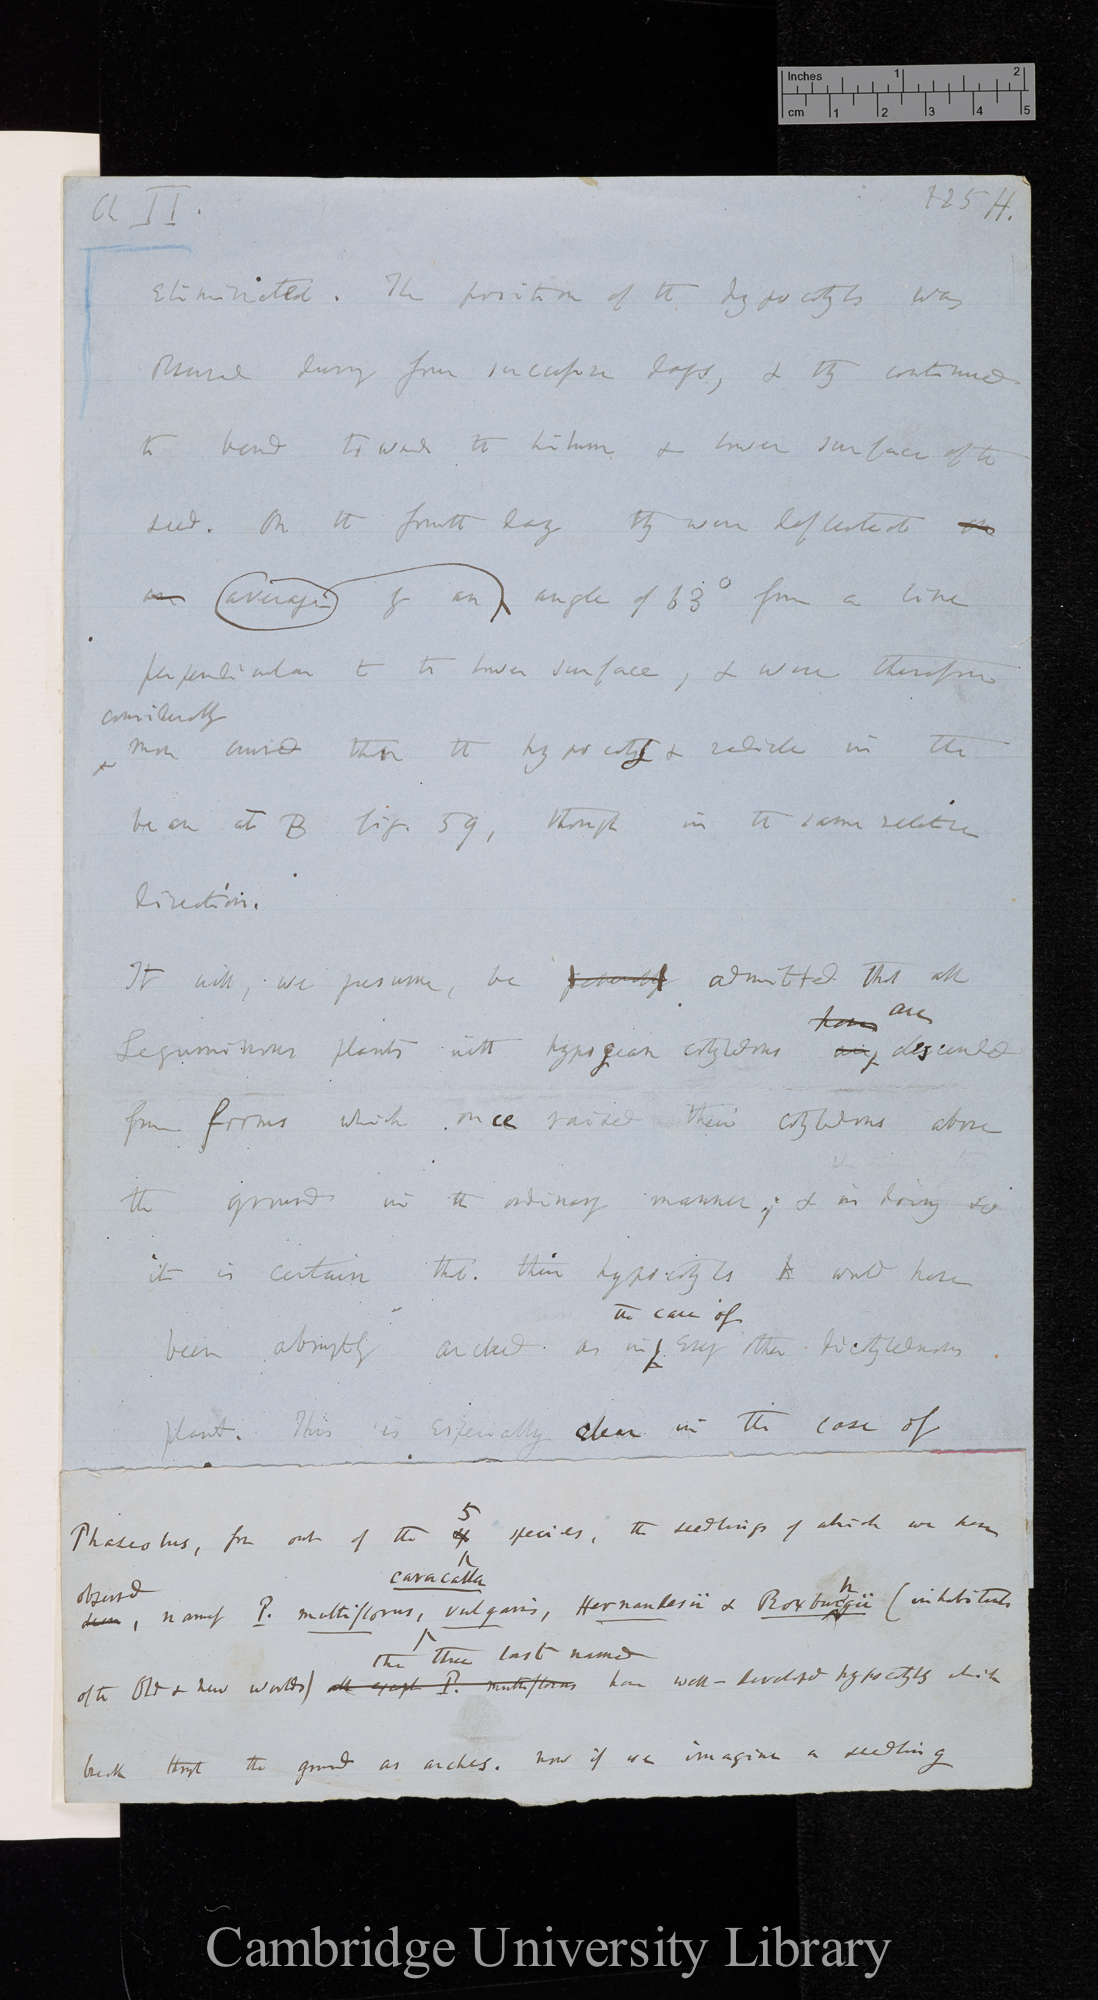 Inches 1 2
cm 1 2 3 4 5
Ch II.
125 H.
eliminated. The position of the hypocotyls was
observed during four successive days, & they continued
to bend towards the hilum & lower surface of the
seed. On the fourth day they were deflected
an average of an angle of 63° from a line
perpendicular to the lower surface, & were therefore
considerably
more curved than the hypocotyl & radicle in the
bean at B fig. 59, though in the same relative
direction.
It will, we presume, be admitted that all
have are
Leguminous plants with hypogean cotyledons descended
from forms which once raised their cotyledons above
the ground in the ordinary manner; & in doing so
it is certain that their hypocotyls would have
the case of
been abruptly arched as in every other dicotyledonous
plant. This is especially clear in the case of
5
Phaseolus, for out of the species, the seedlings of which we have
observed
caracalla
seen, namely P. multiflorus, vulgaris, Hernandesii & Roxburghii (inhabitants
the three last named
of the Old & New Worlds) all except P. multiflorus have well-developed hypocotyls which
break through the ground as arches. Now if we imagine a seedling
Cambridge University Library